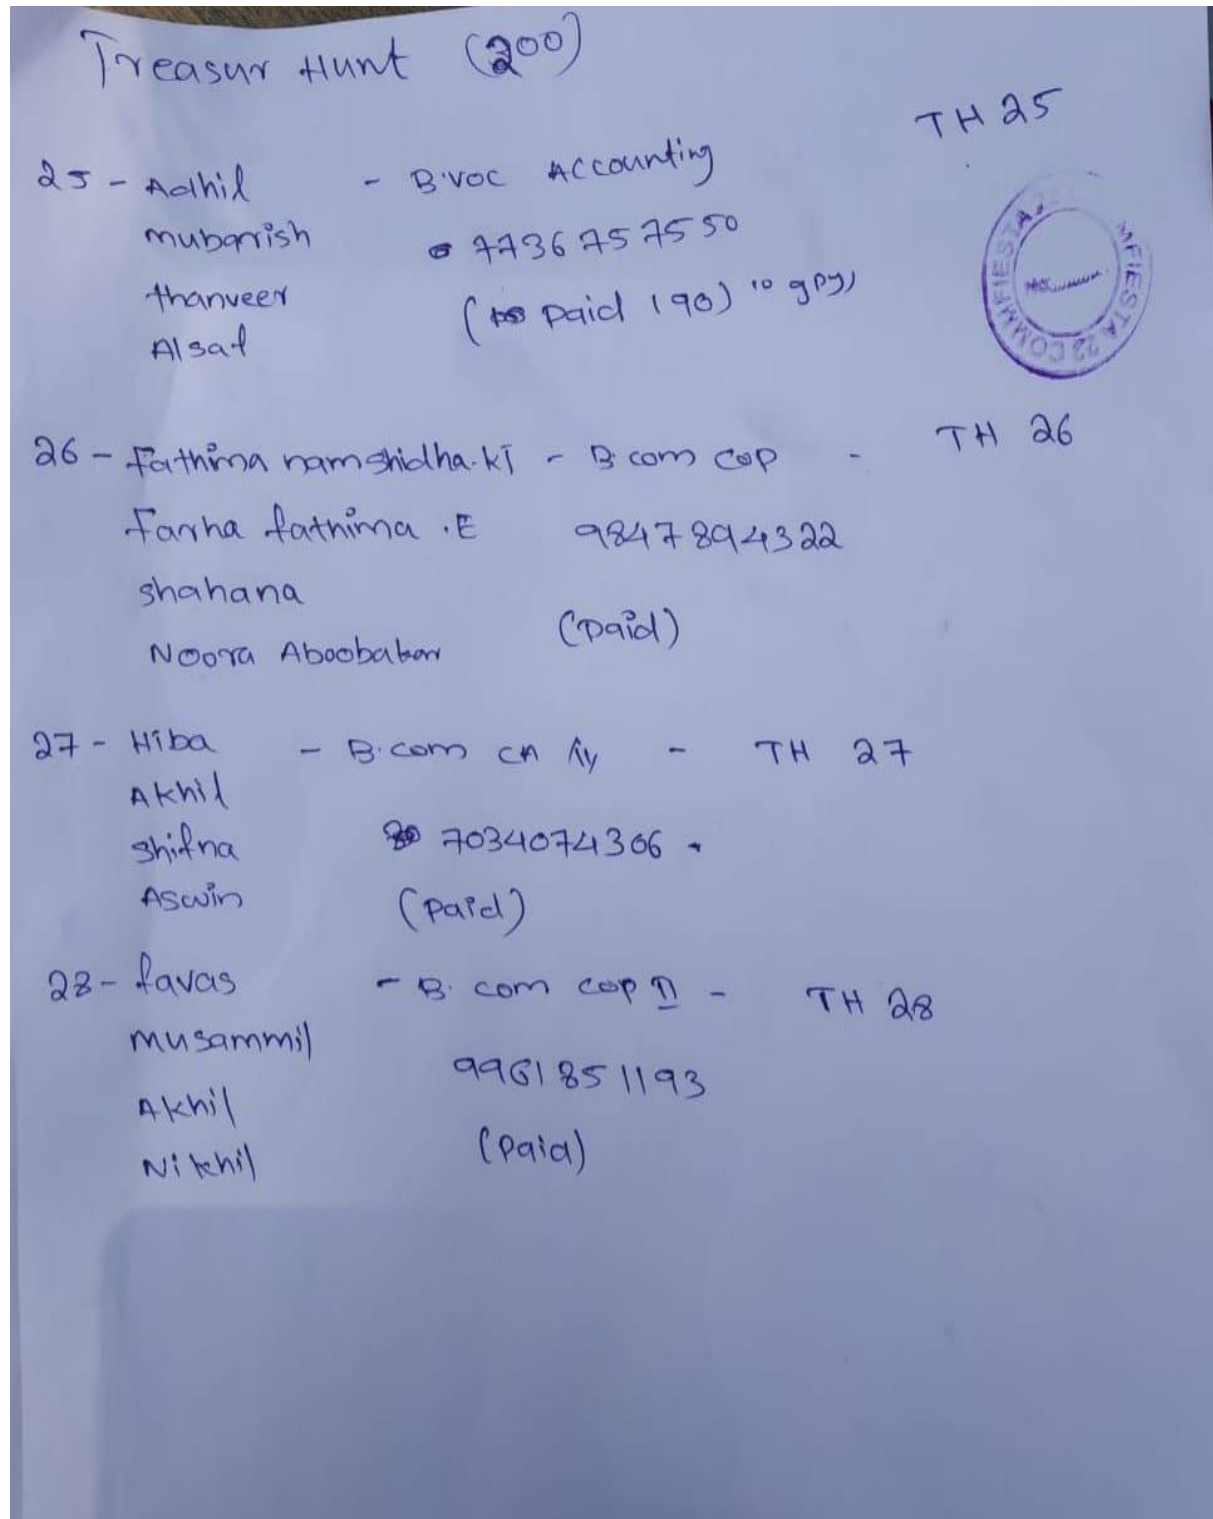 Treasur Hunt (200)
TH 25
25 - Adhil - B.voc Accounting
mubarish 7736757550
thanveer (paid 190) 10 gpy)
Alsaf
COMMFIESTA 22 COMMFIESTA 22
No.
26 - Fathima namshidha.kT - B.com cop - TH 26
Farha fathima .E 9847894322
shahana
(paid)
Noora Aboobaker
27 - Hiba - B.com CA - TH 27
Akhil
Shifna 7034074306
Aswin (paid)
28 - favas - B.com cop II - TH 28
Musammil
9961851193
Akhil
Nikhil (paid)